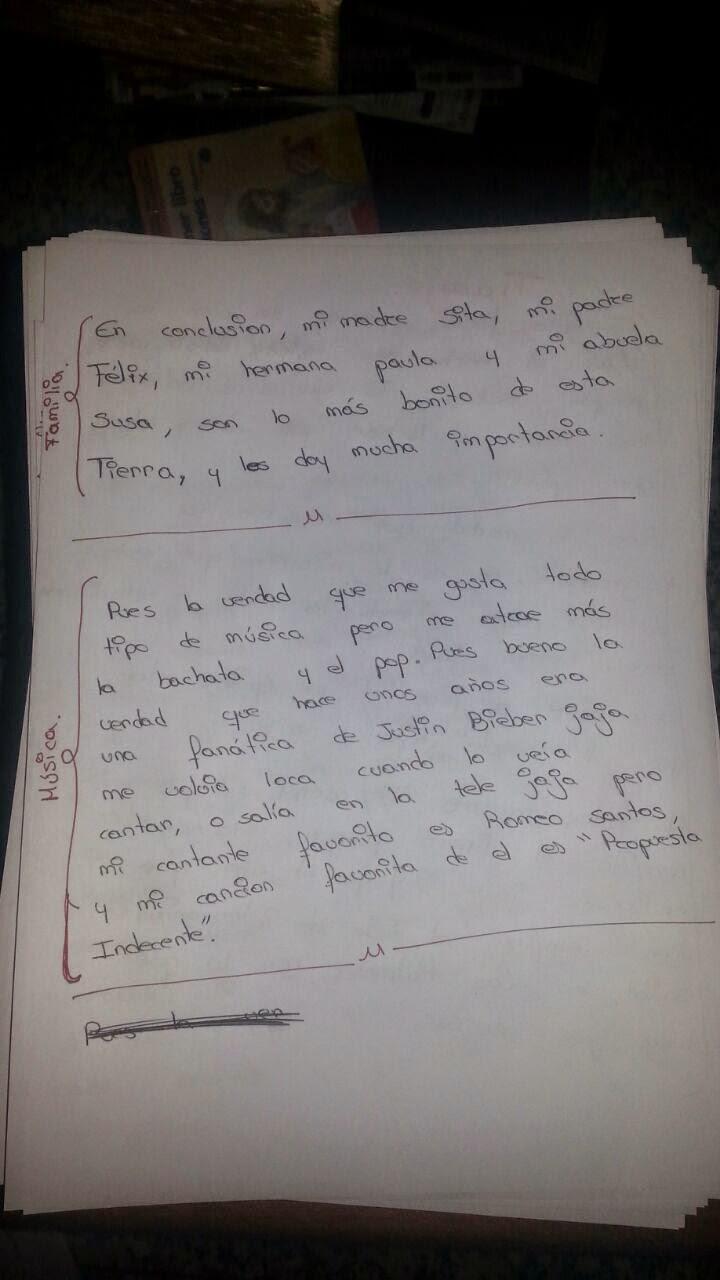 er libro
Familia.
En conclusion, mi madre Sita, mi padre
Félix, mi hermana paula y mi abuela
Susa, son lo más bonito de esta
Tierra, y les doy mucha importancia.
Música.
Pues la verdad que me gusta todo
tipo de música pero me atrae más
la bachata y el pop. Pues bueno la
verdad que hace unos años era
una fanática de Justin Bieber jaja
me volvia loca cuando lo veía
cantar, o salía en la tele jaja pero
mi cantante favorito es Romeo santos,
y mi cancion favorita de el es "Propuesta
Indecente".
Pues la ver